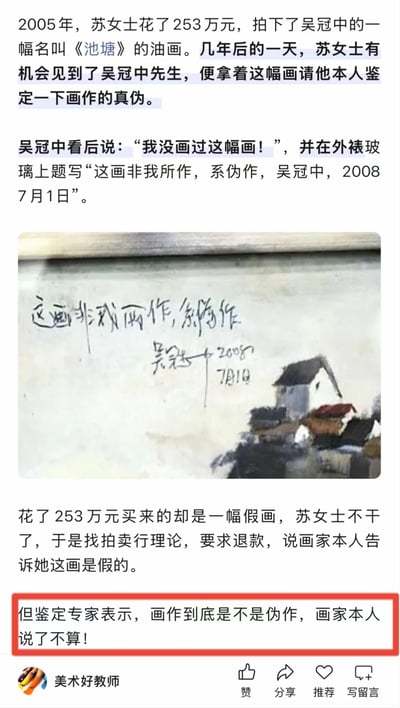 2005年，苏女士花了253万元，拍下了吴冠中的一
幅名叫《池塘》的油画。几年后的一天，苏女士有
机会见到了吴冠中先生，便拿着这幅画请他本人鉴
定一下画作的真伪。
吴冠中看后说：“我没画过这幅画！”，并在外裱玻
璃上题写“这画非我所作，系伪作，吴冠中，2008
7月1日”。
这画非我所作，系伪作
吴冠中 2008
7月1日
花了253万元买来的却是一幅假画，苏女士不干
了，于是找拍卖行理论，要求退款，说画家本人告
诉她这画是假的。
但鉴定专家表示，画作到底是不是伪作，画家本人
说了不算！
美术好教师
赞 分享 推荐 写留言